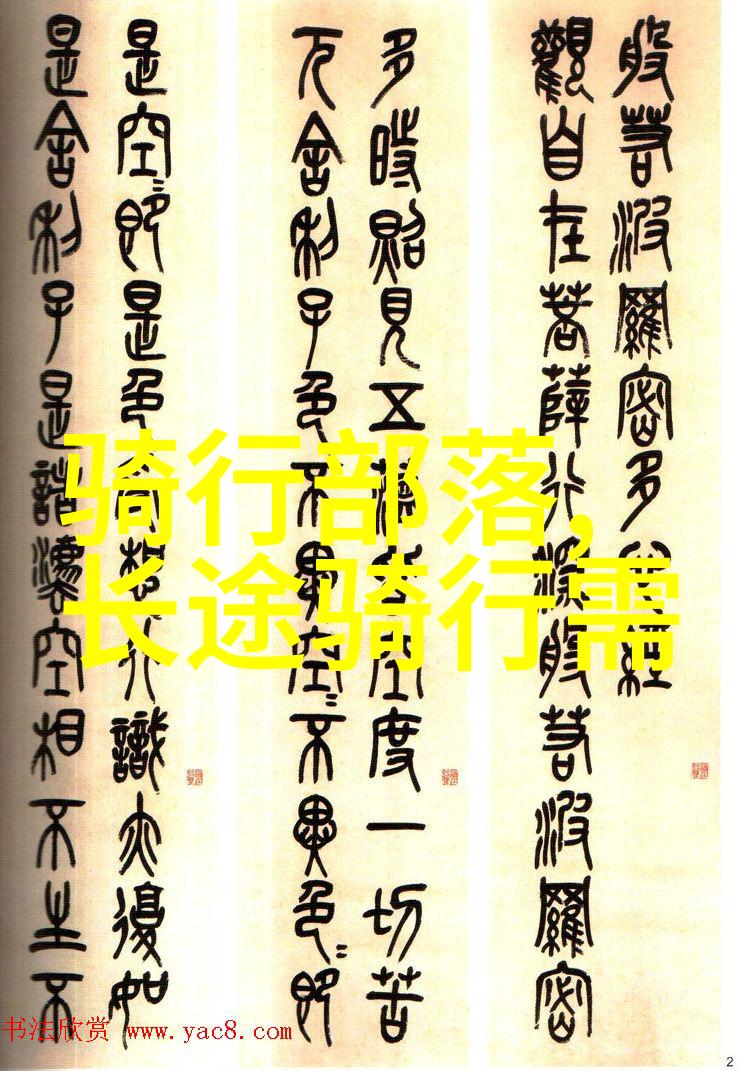 般若波羅密多心經
觀自在菩薩行深般若波羅密
多時照見五蘊皆空度一切苦
厄舍利子色不異空〻不異色〻即
是空〻即是色受想行識亦復如
是舍利子是諸灋空相不生不
骑行部落,
长途骑行需
书法欣赏 www.yac8.com
2